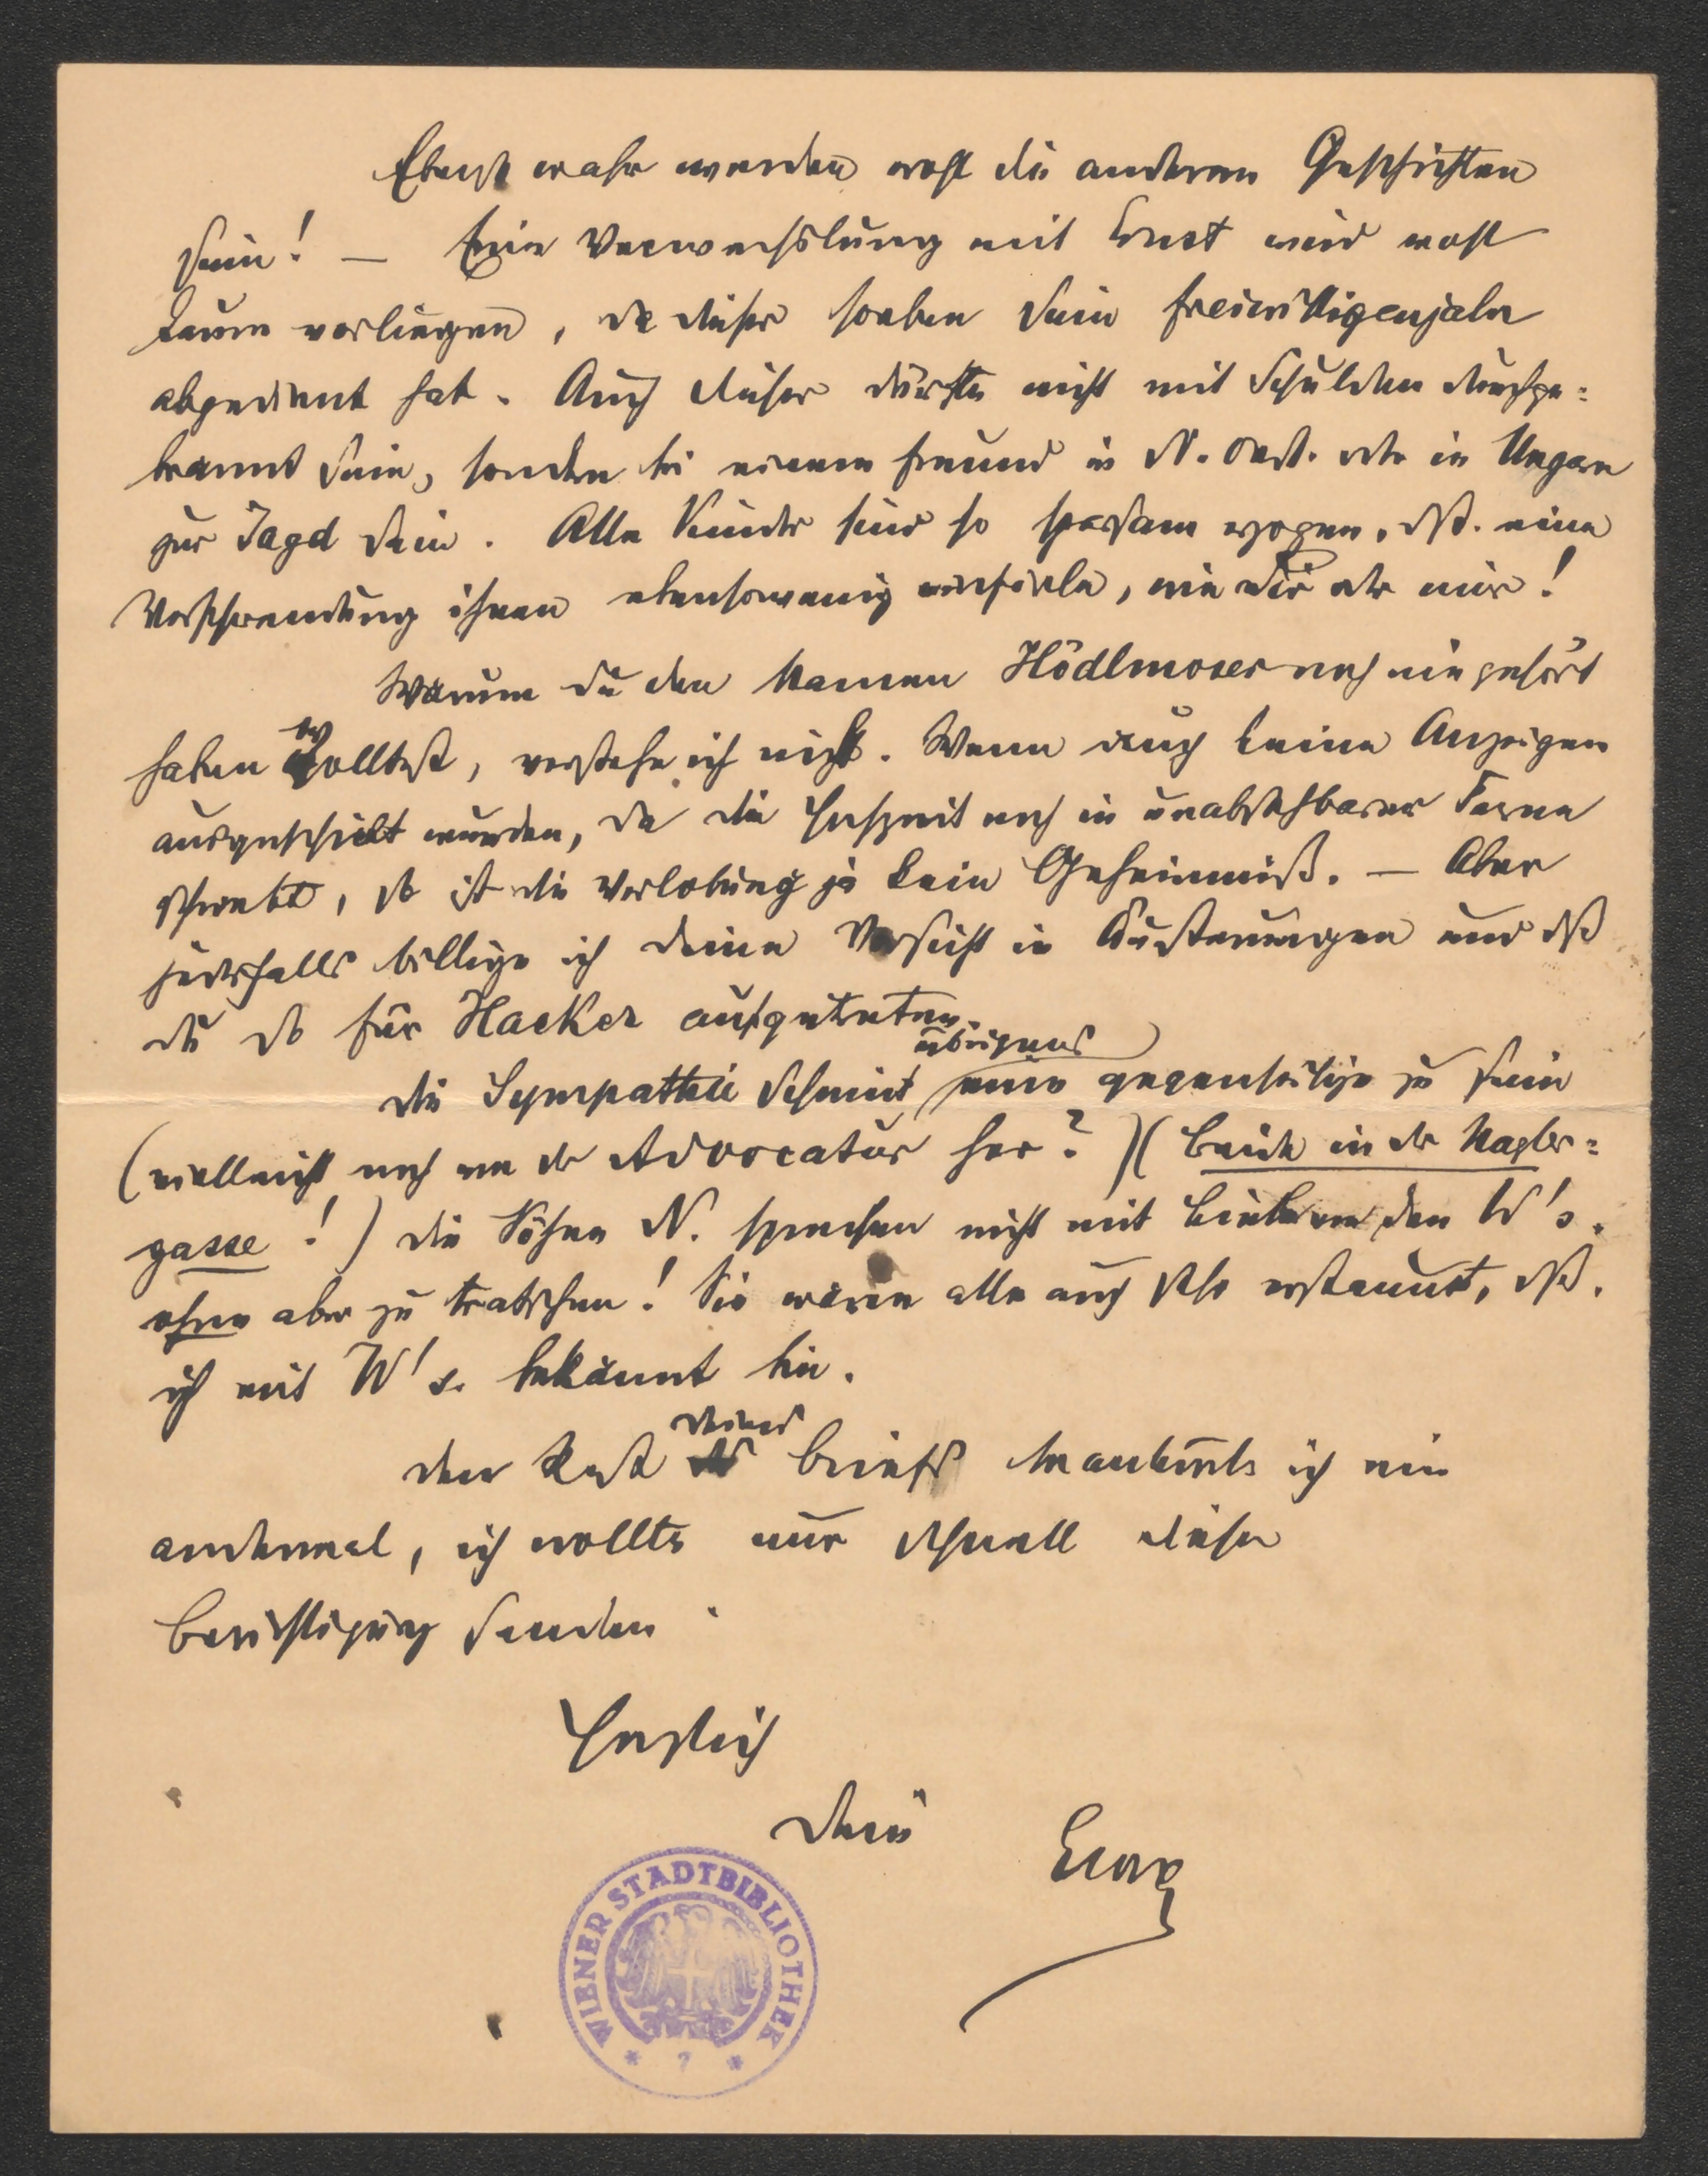 Ebenso wahr werden wohl die anderen Geschichten
sein! — Eine Verwechslung mit Ernst wird wohl
kaum vorliegen, da dieser soeben sein Freiwilligenjahr
abgedient hat. Auch dieser dürfte nicht mit Schulden durchge=
brannt sein, sondern bei einem Freund in N. Oest. oder in Ungarn
zur Jagd sein. Alle Kinder sind so sparsam erzogen, dß. eine
Verschwendung ihnen ebensowenig einfiele, wie dir oder mir!
Warum du den Namen Hödlmoser noch nie gehört
haben wolltest, verstehe ich nicht. Wenn auch keine Anzeigen
ausgeschickt wurden, da die Hochzeit noch in unabsehbarer Ferne
schwebt, so ist die Verlobung ja kein Geheimniß. — Aber
jedesfalls billige ich deine Vorsicht in Äusserungen und dß
du so für Hacker aufgetreten.
übrigens
die Sympathie scheint eine gegenseitige zu sein
(vielleicht noch von der Advocatur her?) (beide in der Nagler=
gasse!) die Söhne N. sprechen nicht mit Liebe von den W's.
ohne aber zu tratschen! Sie waren alle auch sehr erstaunt, dß.
ich mit W's. bekannt bin.
deines
den Rest Briefs beantworte ich ein
andermal, ich wollte nur schnell diese
Berichtigung senden.
Herzlich
dein Georg
WIENER STADTBIBLIOTHEK
* 7 *